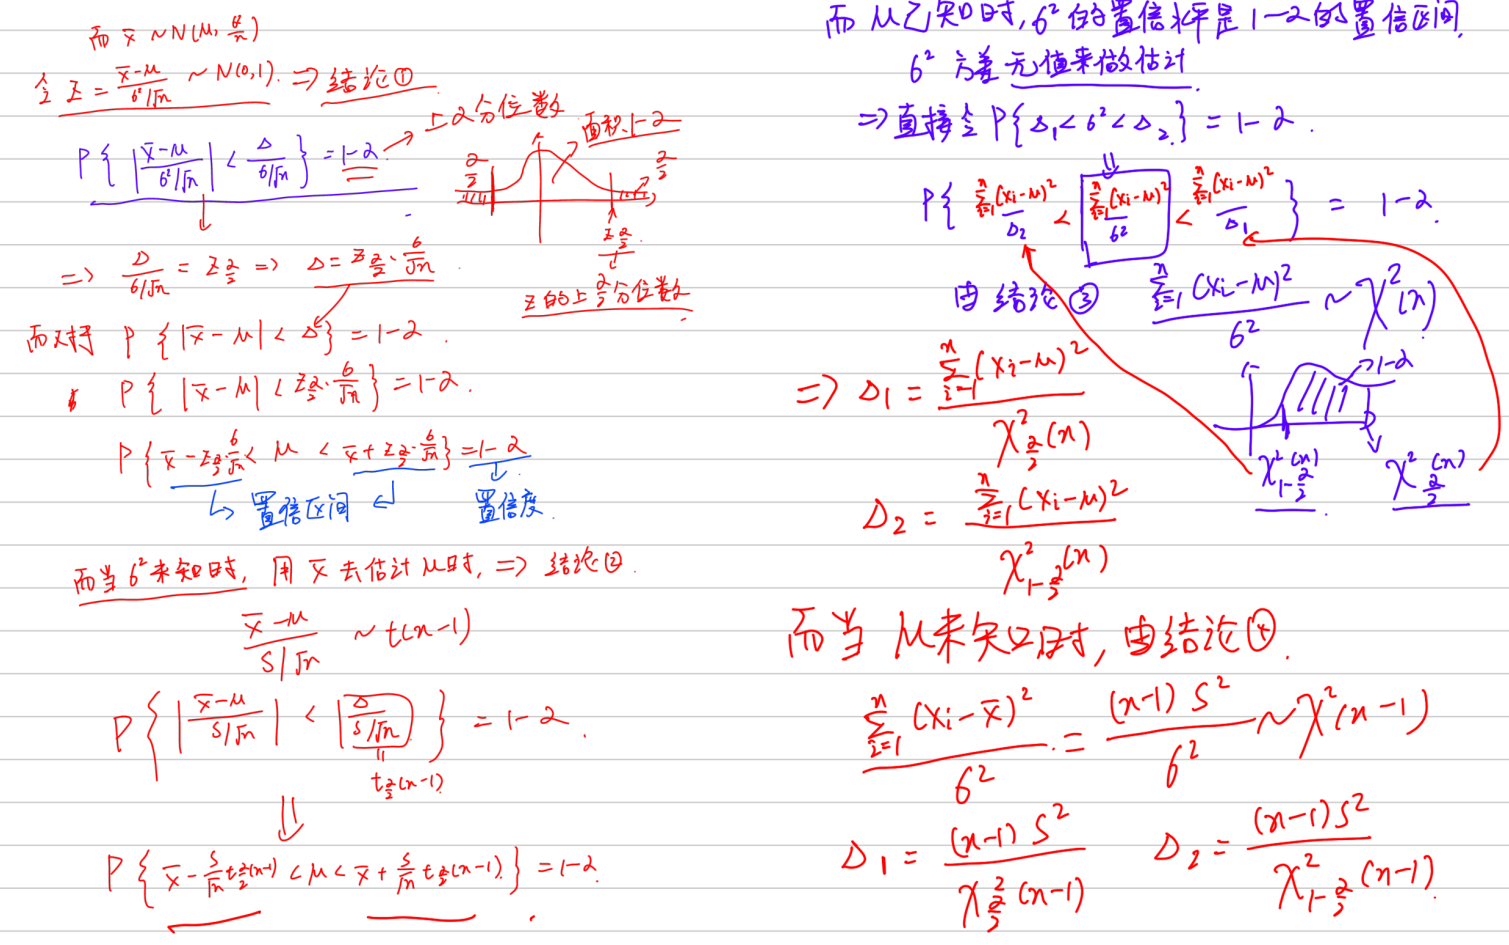 而 x̄ ~ N(μ, σ²/n)
令 Z = (x̄-μ)/(σ²/√n) ~ N(0,1). ⇒ 结论①
P{ |(x̄-μ)/(σ²/√n)| < Δ/(σ/√n) } = 1-α.
上α分位数
面积1-α
α/2
α/2
z_{α/2}
z的上α/2分位数
⇒ Δ/(σ/√n) = z_{α/2} ⇒ Δ = z_{α/2}·σ/√n
而又对于 P{ |x̄-μ| < Δ } = 1-α.
P{ |x̄-μ| < z_{α/2}·σ/√n } = 1-α.
P{ x̄ - z_{α/2}·σ/√n < μ < x̄ + z_{α/2}·σ/√n } = 1-α
置信区间
置信度
而当σ²未知时, 用 x̄ 去估计 μ时, ⇒ 结论②.
(x̄-μ)/(S/√n) ~ t(n-1)
P{ |(x̄-μ)/(S/√n)| < Δ/(S/√n) } = 1-α.
t_{α/2}(n-1)
P{ x̄ - S/√n t_{α/2}(n-1) < μ < x̄ + S/√n t_{α/2}(n-1) } = 1-α.
而 μ已知时, σ²的置信水平是 1-α的置信区间.
σ² 方差 无值来做估计
⇒ 直接令 P{ Δ₁ < σ² < Δ₂ } = 1-α.
P{ Σ_{i=1}^{n}(xi-μ)²/Δ₂ < Σ_{i=1}^{n}(xi-μ)²/σ² < Σ_{i=1}^{n}(xi-μ)²/Δ₁ } = 1-α.
由 结论③ Σ_{i=1}^{n}(xi-μ)²/σ² ~ χ²(n)
1-α
χ²_{1-α/2}(n)
χ²_{α/2}(n)
⇒ Δ₁ = Σ_{i=1}^{n}(xi-μ)²/χ²_{α/2}(n)
Δ₂ = Σ_{i=1}^{n}(xi-μ)²/χ²_{1-α/2}(n)
而当 μ未知时, 由结论④.
Σ_{i=1}^{n}(xi-x̄)²/σ² = (n-1)S²/σ² ~ χ²(n-1)
Δ₁ = (n-1)S²/χ²_{α/2}(n-1) Δ₂ = (n-1)S²/χ²_{1-α/2}(n-1)